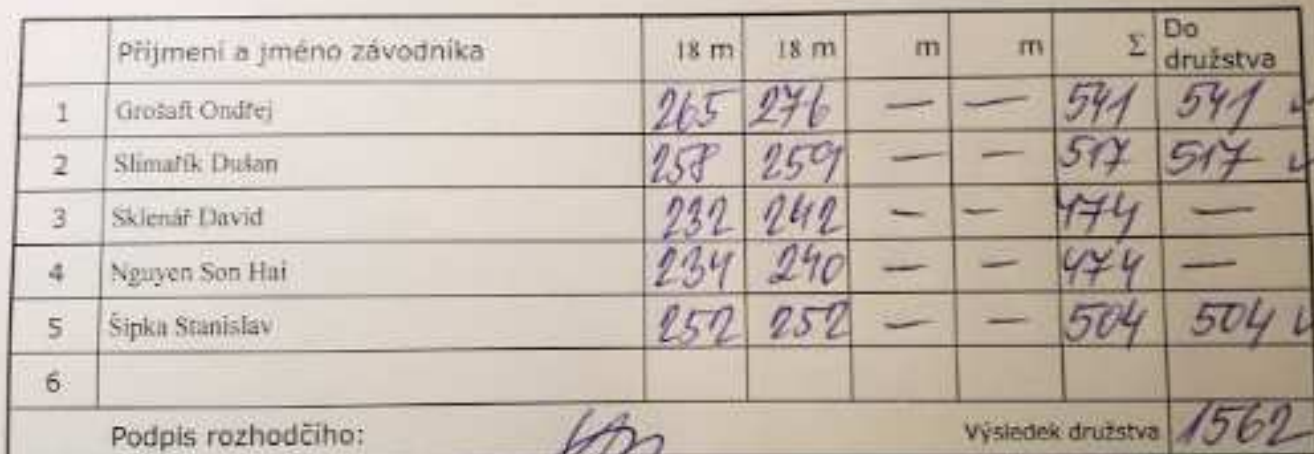 Příjmení a jméno závodníka 18 m 18 m m m Σ Do družstva
1 Grošaft Ondřej 265 276 — — 541 541
2 Slimařík Dušan 258 259 — — 517 517
3 Sklenář David 232 242 — — 474 —
4 Nguyen Son Hai 234 240 — — 474 —
5 Šipka Stanislav 252 252 — — 504 504
6
Podpis rozhodčího: Výsledek družstva 1562